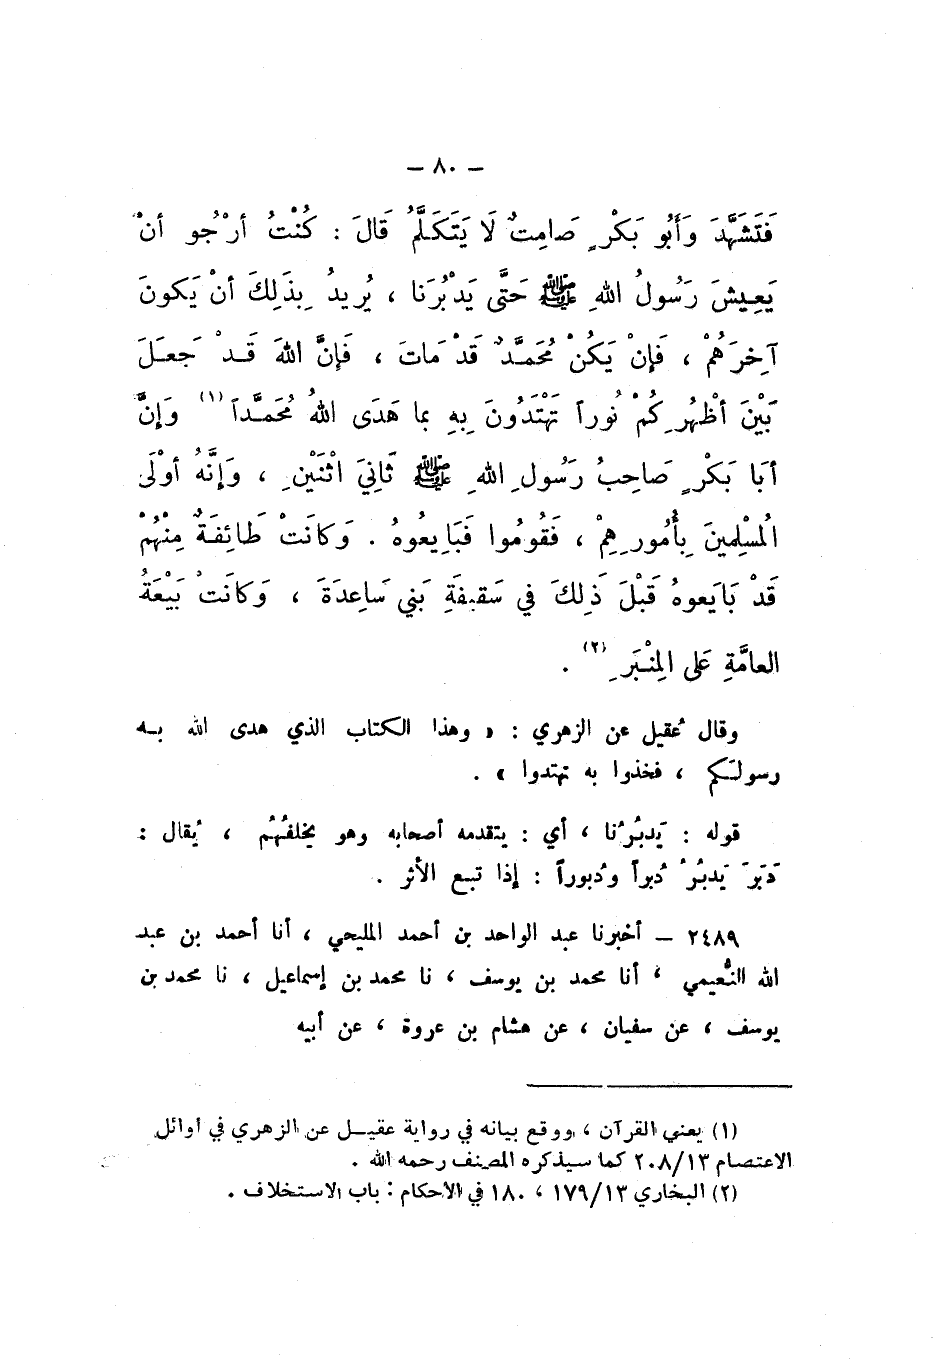 — ٨٠ —
فَتَشَهَّدَ وَأَبُو بَكْرٍ صَامِتٌ لَا يَتَكَلَّمُ قَالَ : كُنْتُ أرْجُو أنْ
يَعِيشَ رَسُولُ اللهِ ﷺ حَتَّى يَدْبُرَنا ، يُريدُ بِذَلِكَ أنْ يَكونَ
آخِرَهُمْ ، فَإنْ يَكُنْ مُحَمَّدٌ قَدْ مَاتَ ، فَإنَّ اللهَ قَدْ جَعَلَ
بَيْنَ أظْهُرِكُمْ نُوراً تَهْتَدُونَ بِهِ بما هَدَى اللهُ مُحَمَّداً (١) وَإنَّ
أبَا بَكْرٍ صَاحِبُ رَسُولِ اللهِ ﷺ ثَانِيَ اثْنَيْنِ ، وَإنَّهُ أوْلَى
المُسْلِمينَ بِأُمُورِهِمْ ، فَقُومُوا فَبَايِعُوهُ . وَكَانَتْ طَائِفَةٌ مِنْهُمْ
قَدْ بَايَعوهُ قَبْلَ ذَلِكَ في سَقيفَةِ بَني سَاعِدَةَ ، وَكَانَتْ بَيْعَةُ
العامَّةِ عَلى المِنْبَرِ (٢) .
وقال عُقيل عن الزهري : « وهذا الكتاب الذي هدى الله بـه
رسولكم ، فخذوا به تهتدوا » .
قوله : يَدبُرُنا ، أي : يتقدمه أصحابه وهو يخلفُهُم ، يُقال :
دَبَرَ يَدبُرُ دُبراً ودُبوراً : إذا تبع الأثر .
٢٤٨٩ — أخبرنا عبد الواحد بن أحمد المليحي ، أنا أحمد بن عبد
الله النُّعيمي ، أنا محمد بن يوسف ، نا محمد بن إسماعيل ، نا محمد بن
يوسف ، عن سفيان ، عن هشام بن عروة ، عن أبيه
(١) يعني القرآن ، ووقع بيانه في رواية عقيـل عن الزهري في اوائل
الاعتصام ٢٠٨/١٣ كما سيذكره المصنف رحمه الله .
(٢) البخاري ١٧٩/١٣ ، ١٨٠ في الأحكام : باب الاستخلاف .